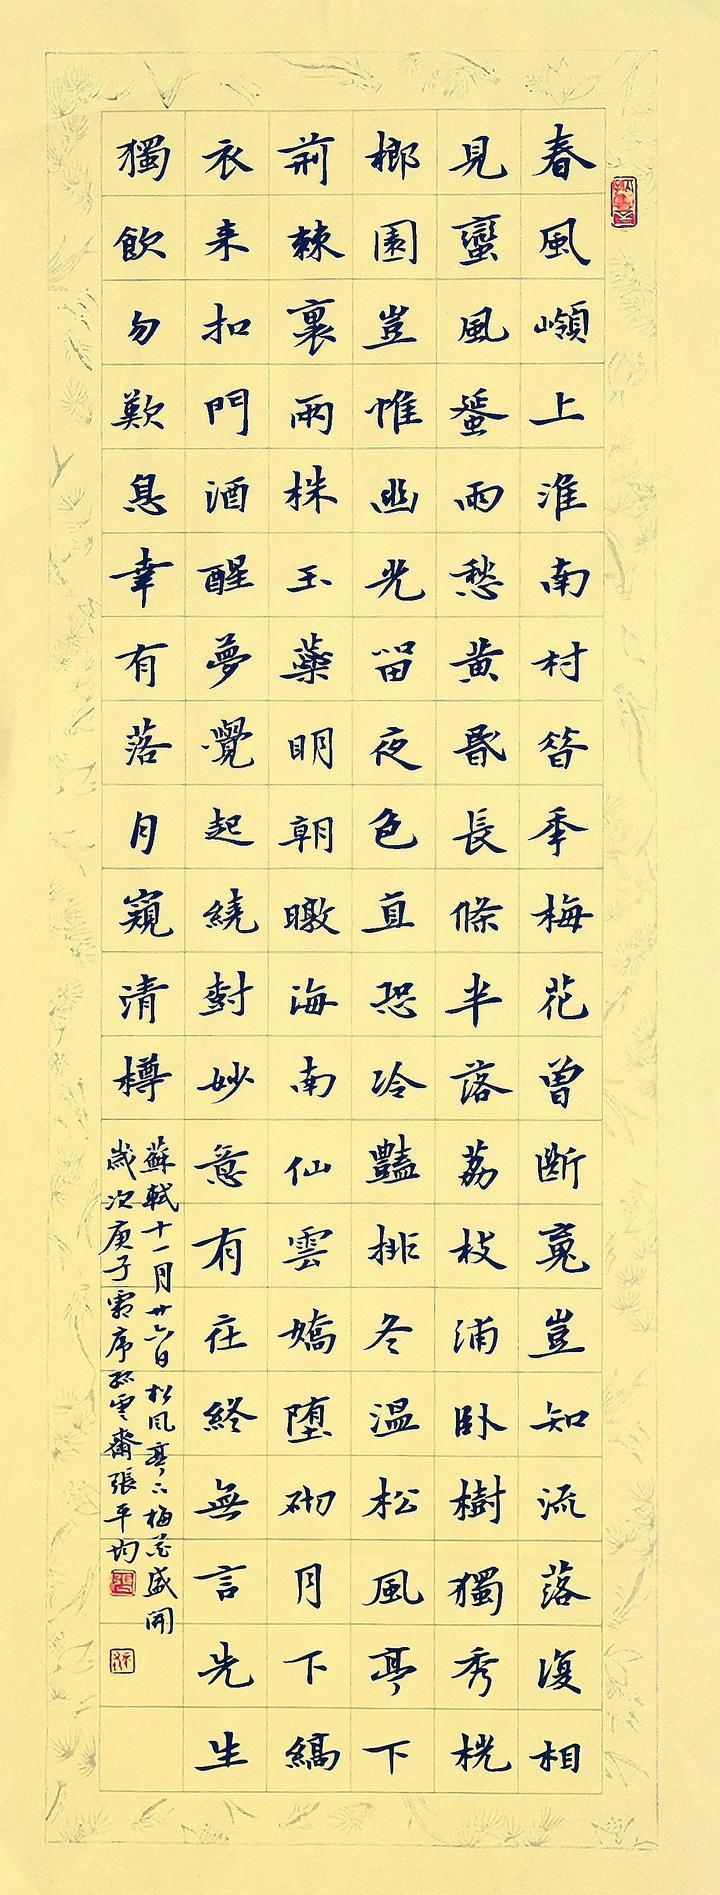 春風嶺上淮南村昝季梅花曾斷䰟豈知流落復相
見蠻風蜑雨愁黃昬長條半落荔枝浦臥樹獨秀桄
榔園豈惟幽光留夜色直恐冷豔排冬溫松風亭下
荊棘裏兩株玉蘂明朝暾海南仙雲嬌墮砌月下縞
衣来扣門酒醒夢覺起繞𣗳妙意有在終無言先生
獨飲勿歎息幸有落月窺清樽
蘇軾十一月廿六日松風亭下梅花盛開
歲次庚子霜序雲齋張平均